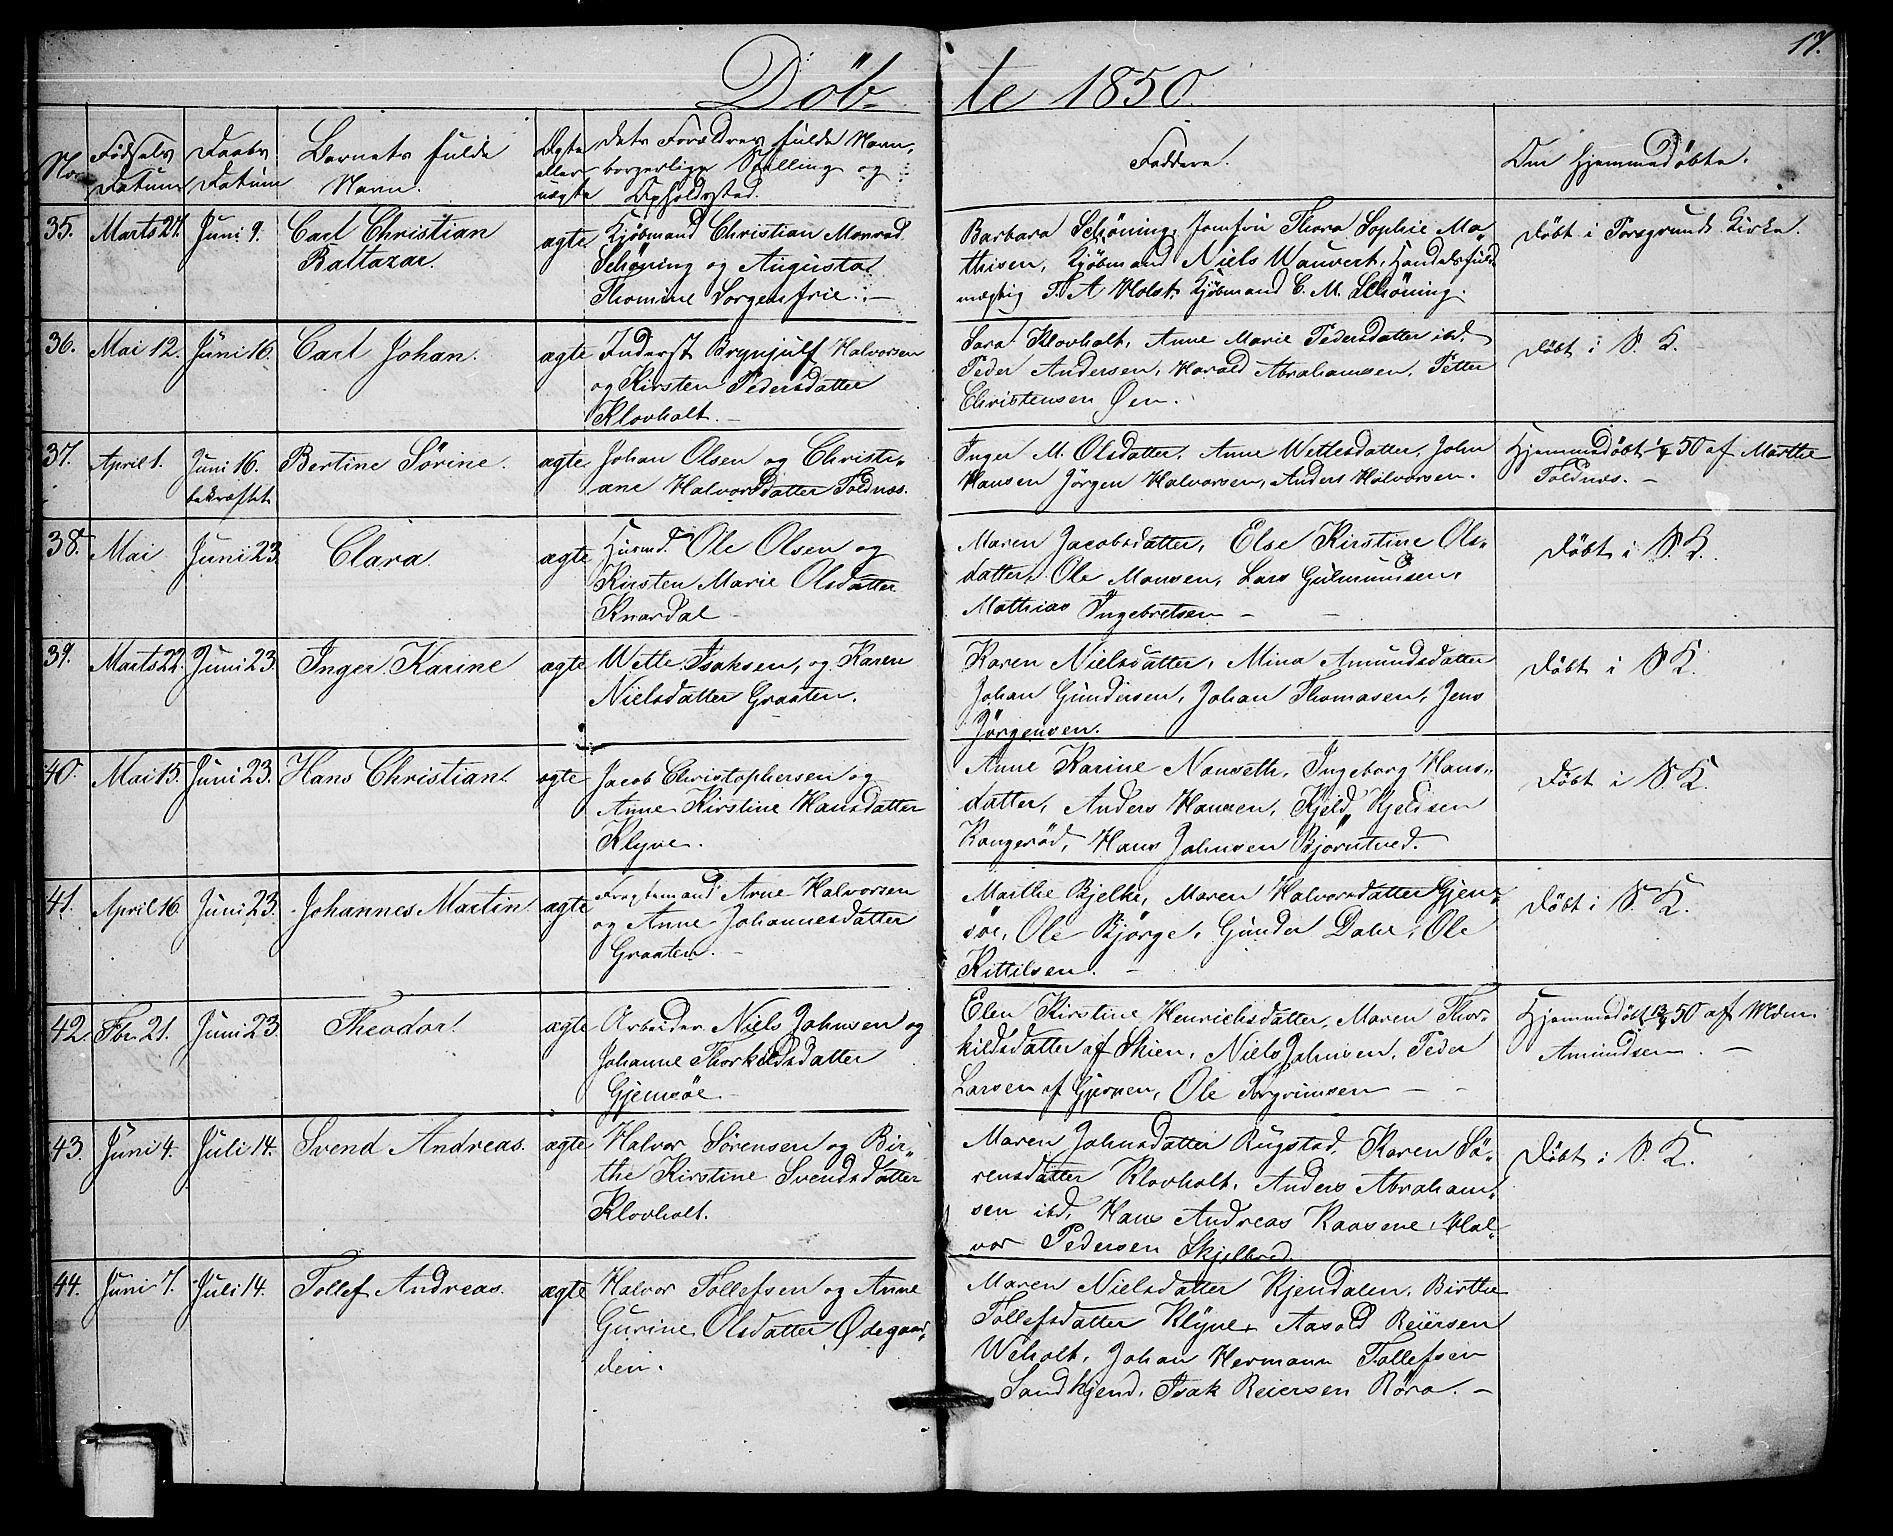 17.
Döbte 1850.
No. Fødsels Datum Daabs Datum Barnets fulde Navn. Ægte eller uægte Dets Forældres fulde Navn, borgerlige Stilling og Opholdssted. Faddere. Om hjemmedøbte.
35. Marts 27. Juni 9. Carl Christian
Baltazar.
ægte Kjøbmand Christian Monrad
Schøning og Augusta
Thomine Sorgenfrie. –
Barbara Schöning, Jomfru Thora Sophie Ma-
thisen, Kjöbmand Niels Wauvert, Handelsfuld-
mægtig T. A Holst, Kjöbmand C. M. Schöning.
Döbt i Porsgrunds Kirke.
36. Mai 12. Juni 16. Carl Johan.
ægte Inderst Brynjulf Halvorsen
og Kirsten Pedersdatter
Klovholt. –
Sara Klovholt, Anne Marie Pedersdatter ibd.
Peder Andersen, Harald Abrahamsen, Petter
Christensen Øen.
Döbt i S. K.
37. April 1. Juni 16.
bekræftet
Bertine Sörine.
ægte Johan Olsen og Christi-
ane Halvorsdatter Foldnæs.
Inger M. Olsdatter, Anne Wetlesdatter, John
Hansen Jörgen Halvorsen, Anders Halvorsen.
Hjemmedöbt 1/4 50 af Marthe
Foldnæs. –
38. Mai Juni 23 Clara
ægte Husmd. Ole Olsen og
Kirsten Marie Olsdatter
Knardal –
Maren Jacobsdatter, Else Kirstine Ols-
datter, Ole Monsen, Lars Gulmundsen,
Mathias Ingebretsen –
Döbt i S. K.
39. Marts 22. Juni 23. Inger Karine
ægte Wetle Isaksen, og Karen
Nielsdatter Graaten.
Karen Nielsdatter, Mina Amundsdatter
Johan Gundersen, Johan Thomasen, Jens
Jörgensen.
Döbt i S K.
40. Mai 15. Juni 23. Hans Christian.
ægte Jacob Christophersen og
Anne Kirstine Hansdatter
Klyve.
Anne Karine Nanseth, Ingeborg Hans-
datter, Anders Hansen, Kjeld Kjeldsen
Kongeröd, Hans Johnsen Bjørntved.
Döbt i S K.
41. April 16. Juni 23. Johannes Martin
ægte Fragtemand Arne Halvorsen
og Anne Johannesdatter
Graaten. –
Marthe Bjelke, Maren Halvorsdatter Gjem-
söe, Ole Björge, Gunder Dahl, Ole
Kittilsen. –
Döbt i S. K.
42. Fbr 21. Juni 23 Theodor.
ægte Arbeider Niels Johnsen og
Johanne Thorkildsdatter
Gjemsöe.
Elen Kirstine Henrichsdatter, Maren Thor-
kildsdatter af Skien, Niels Johnsen, Peder
Larsen af Gjerpen, Ole Torgrimsen –
Hjemmedöbt 50 af
Amundsen. –
43. Juni 4. Juli 14. Svend Andreas.
ægte Halvor Sörensen og Bir-
the Kirstine Svendsdatter
Klovholt.
Maren Johnsdatter Rugstad, Karen Sö-
rensdatter Klovholt, Anders Abraham-
sen ibd, Hans Andreas Raasene, Hal-
vor Pedersen Skjelbred
Döbt i S. K.
44. Juni 7. Juli 14. Tollef Andreas.
ægte Halvor Tollefsen og Anne
Gurine Olsdatter Ødegaar-
den.
Maren Nielsdatter Kjendalen, Birthe
Tollefsdatter Klyve, Aasold Reiersen
Weholt, Johan Hermann Tollefsen
Sandkjend, Isak Reiersen Röra. –